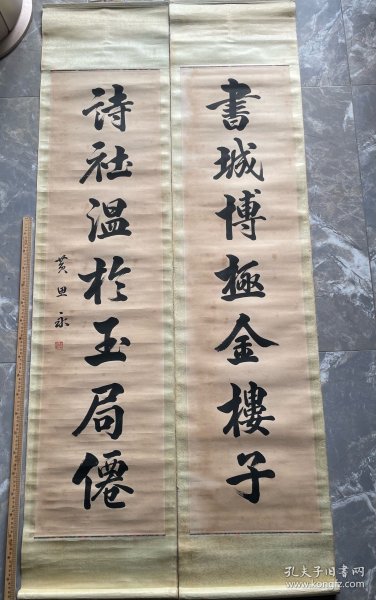 書城博極金樓子
詩社温於玉局僊
黄思永
孔夫子旧书网